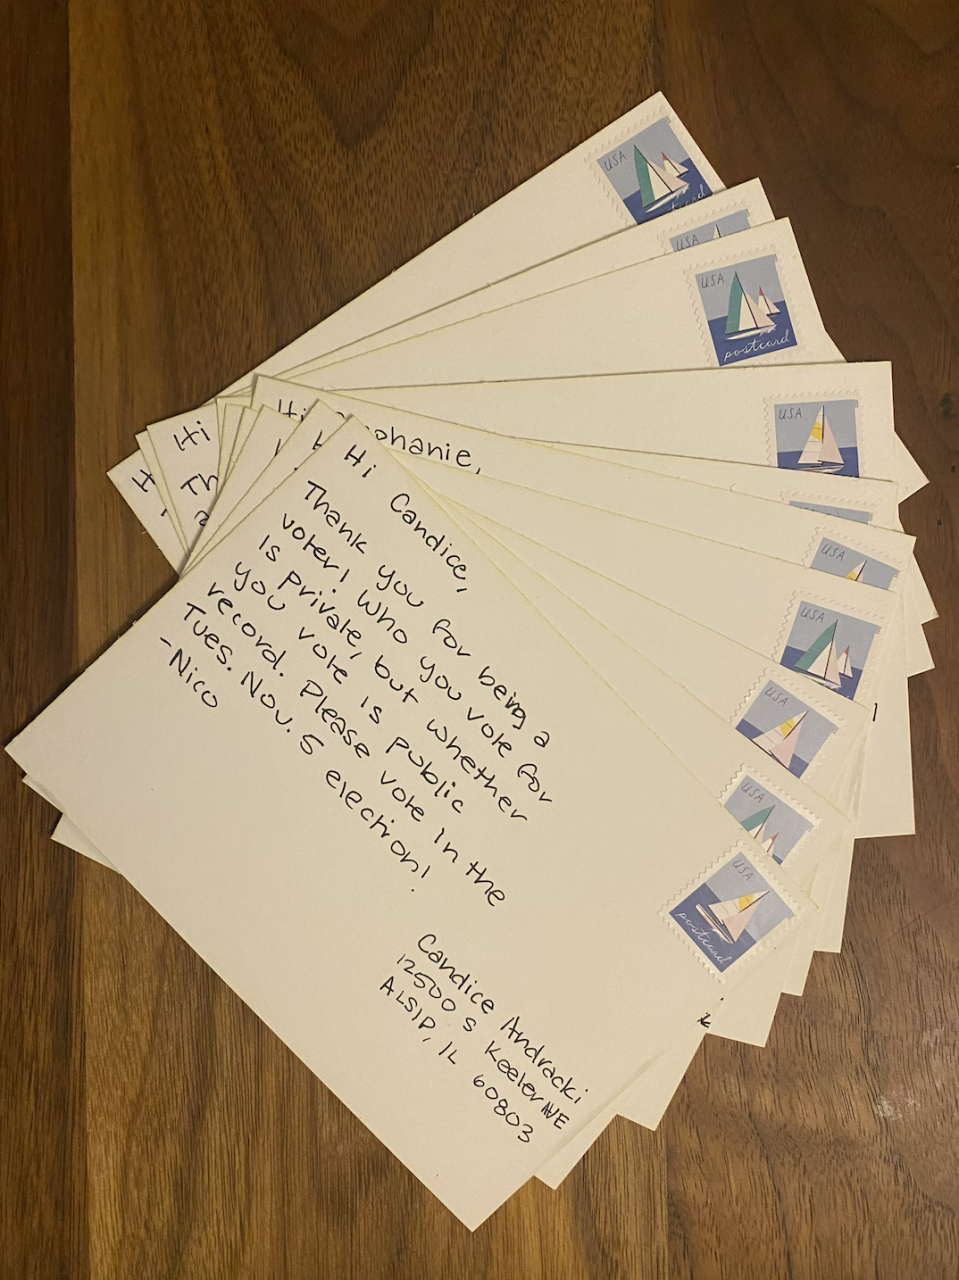 USA
postcard
USA
USA
postcard
USA
USA
USA
USA
USA
USA
postcard
Hi
Hi
Th
Hi
phanie,
Hi Candice,
Thank you for being a
voter! Who you vote for
is private, but whether
you vote is public
record. Please vote in the
Tues. Nov. 5 election!
-Nico
Candice Andracki
12500 S Keeler AVE
ALSIP, IL 60803